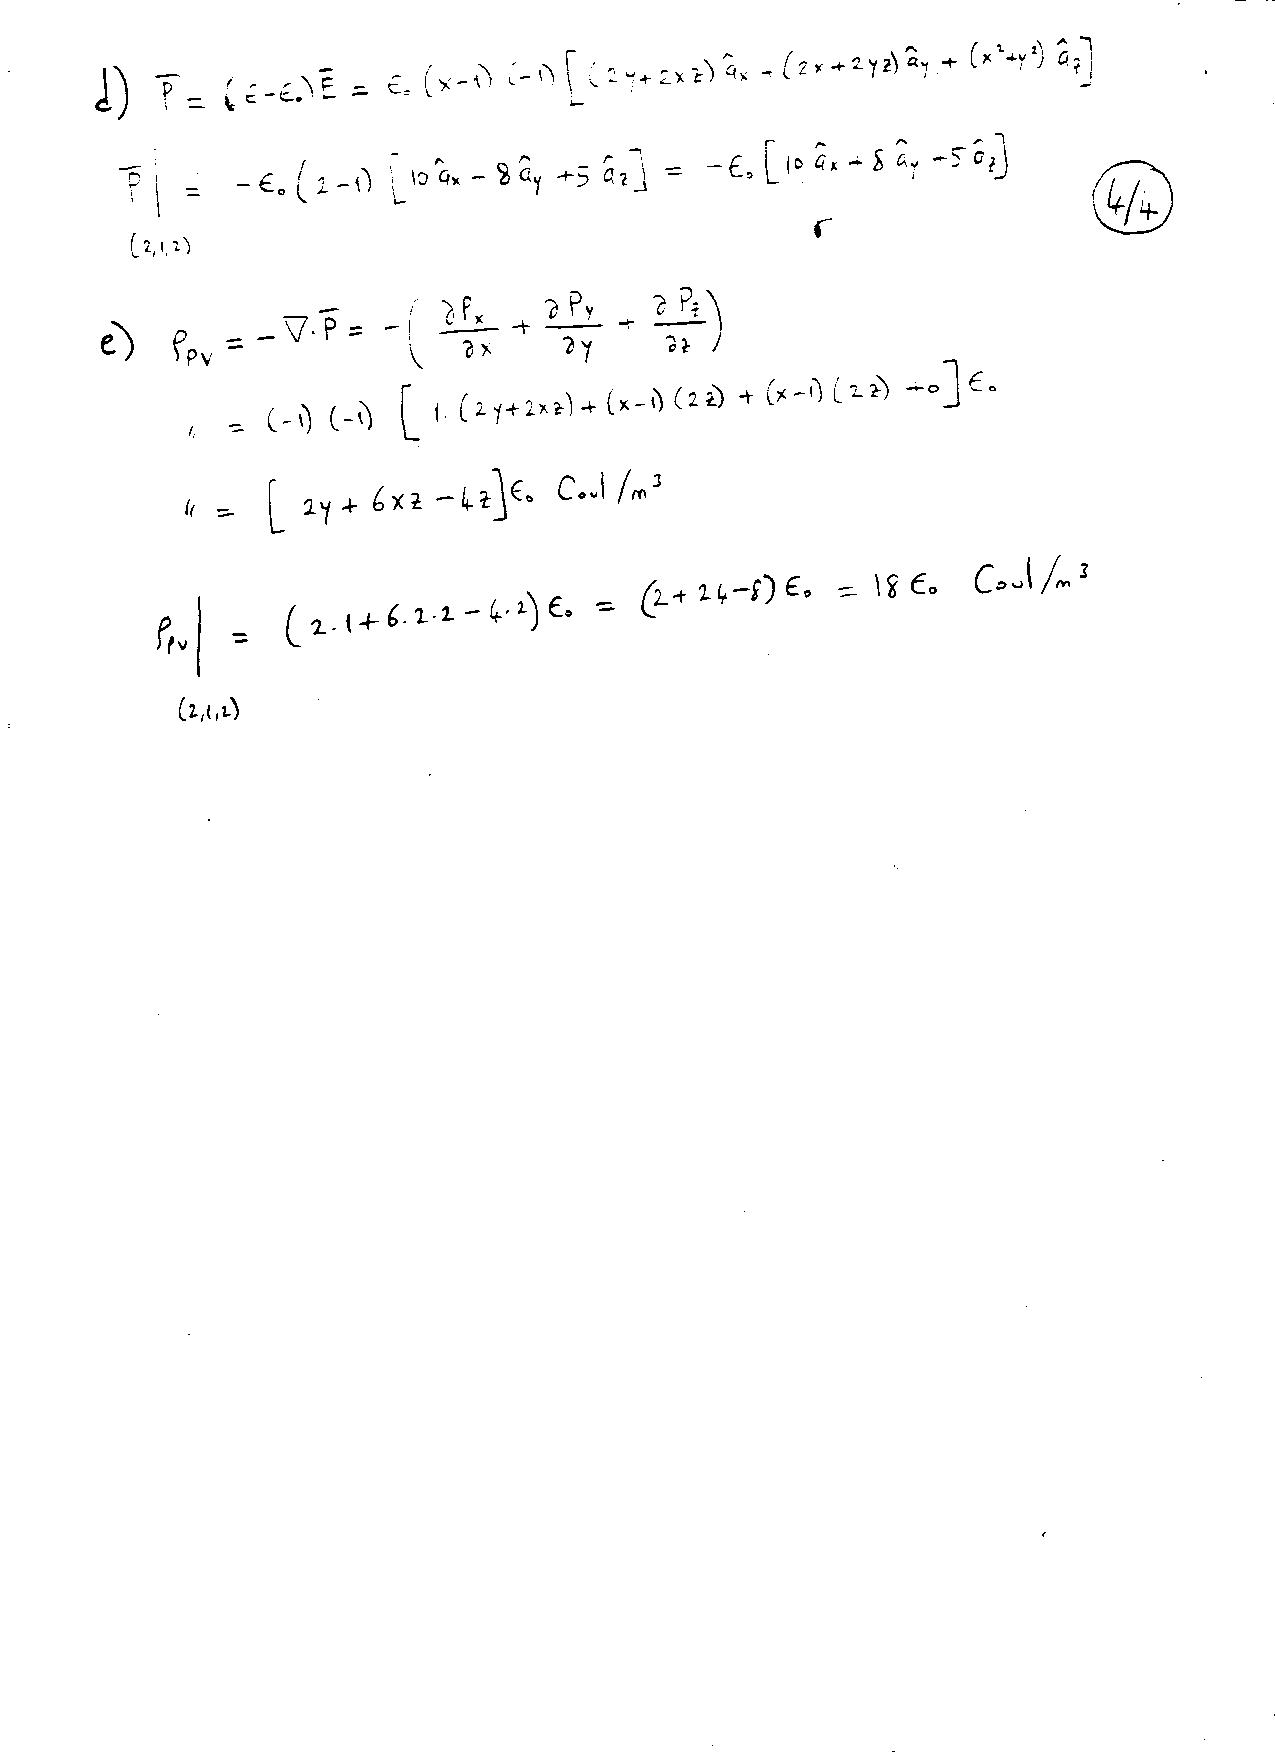 d) P̄ = (ε-ε₀)Ē = ε₀ (x-1) (-1) [(2y+2xz) âx + (2x+2yz) ây + (x²+y²) âz]
P̄| = -ε₀ (2-1) [10 âx + 8 ây + 5 âz] = -ε₀ [10 âx + 8 ây + 5 âz]
(2,1,2)
4/4
e) ρpv = -∇·P̄ = -(∂Px/∂x + ∂Py/∂y + ∂Pz/∂z)
" = (-1) (-1) [1.(2y+2xz) + (x-1)(2z) + (x-1)(2z) + 0] ε₀
" = [2y + 6xz - 4z] ε₀ Coul/m³
ρpv| = (2.1+6.2.2-4.2) ε₀ = (2+24-8) ε₀ = 18 ε₀ Coul/m³
(2,1,2)